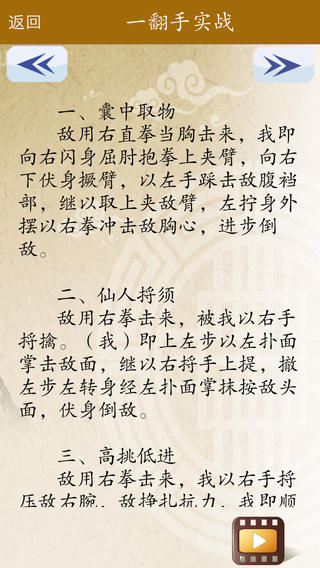 返回
一翻手实战
一、囊中取物
敌用右直拳当胸击来，我即
向右闪身屈肘抱拳上夹臂，向右
下伏身撅臂，以左手踩击敌腹裆
部，继以取上夹敌臂，左拧身外
摆以右拳冲击敌胸心，进步倒
敌。
二、仙人捋须
敌用右拳击来，被我以右手
捋擒。（我）即上左步以左扑面
掌击敌面，继以右捋手上提，撤
左步左转身经左扑面掌抹按敌头
面，伏身倒敌。
三、高挑低进
敌用右拳击来，我以右手捋
压敌右腕，敌挣扎抗力，我即顺